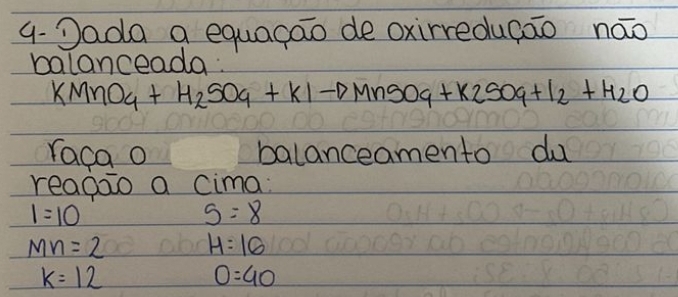 4- Dada a equação de oxirredução não
balanceada:
KMnO4 + H2SO4 + KI → MnSO4 + K2SO4 + I2 + H2O
Faça o balanceamento da
reação a cima:
I = 10 S = 8
Mn = 2 H = 16
K = 12 O = 40